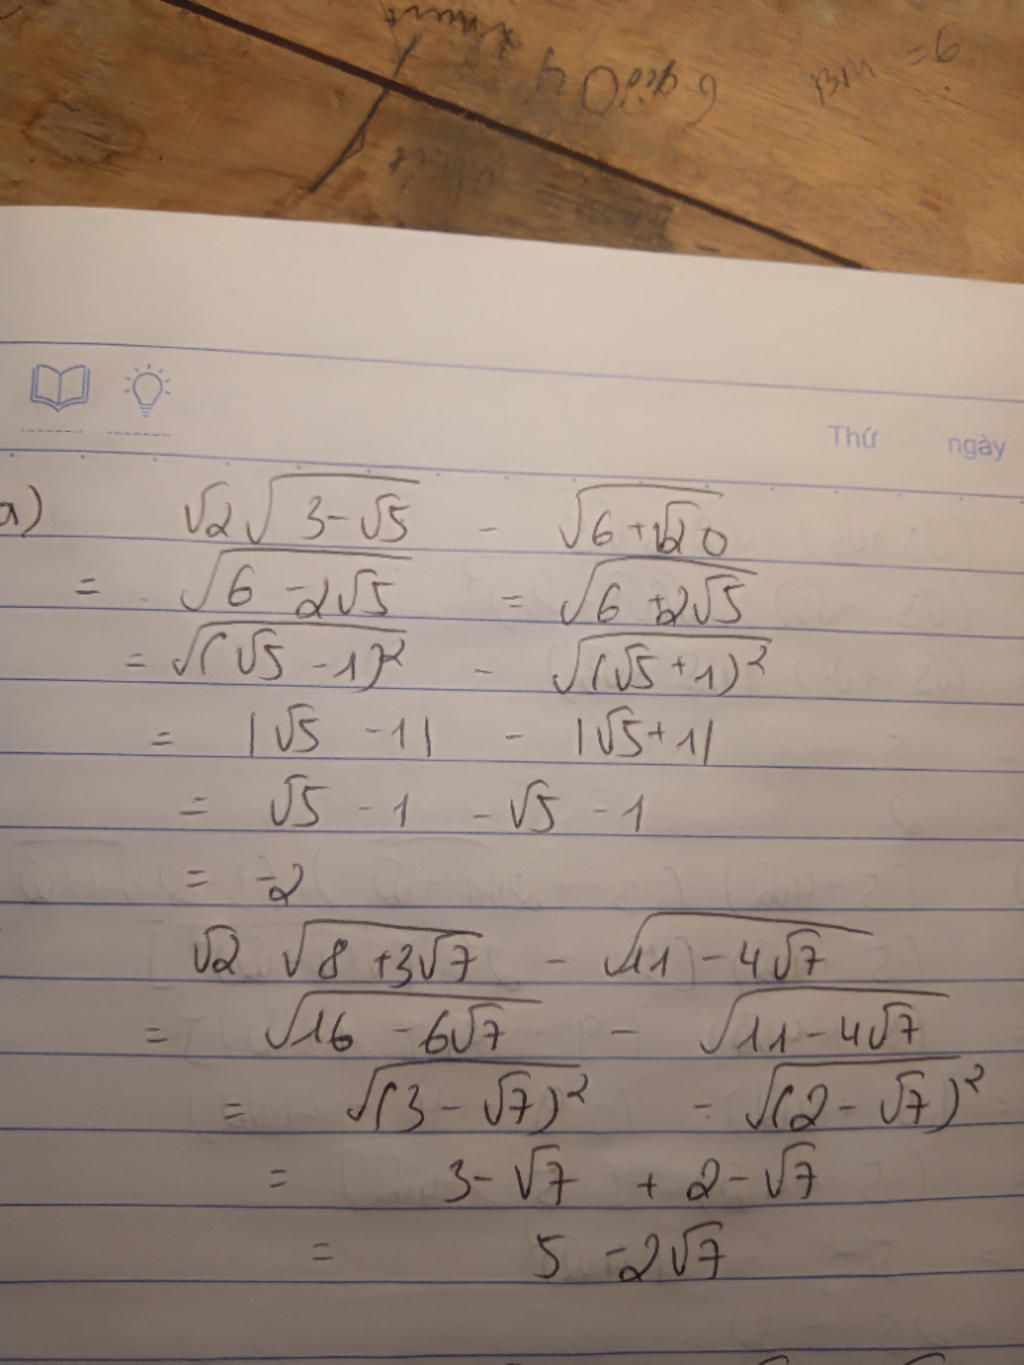 BM = 6
6 giờ 4
Thứ ngày
a) √2√(3-√5) - √(6+√20)
= √(6-2√5) = √(6+2√5)
= √((√5-1)²) - √((√5+1)²)
= |√5 -1| - |√5+1|
= √5 - 1 - √5 - 1
= -2
√2 √(8+3√7) - √(11-4√7)
= √(16-6√7) - √(11-4√7)
= √((3-√7)²) - √((2-√7)²)
= 3-√7 + 2-√7
= 5 -2√7